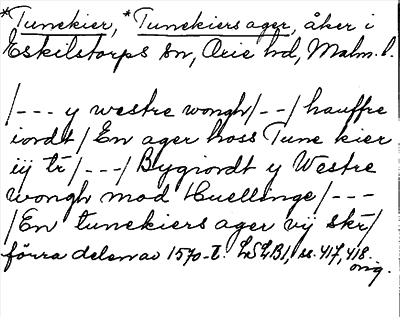 *Tunekier, *Tunekiersager, åker i
Eskilstorps sn, Oxie hd, Malm. l.
/--- y westre wongh/--/ hauffre
iordt/ En ager hoss Tune kier
iij tr/ ---/ Bygiordt y Westre
wongh mod Huellinge/ ---
/En tunekiers ager vij skr/
förra delen av 1570-t. LSLB1, ss. 417, 418.
orig.